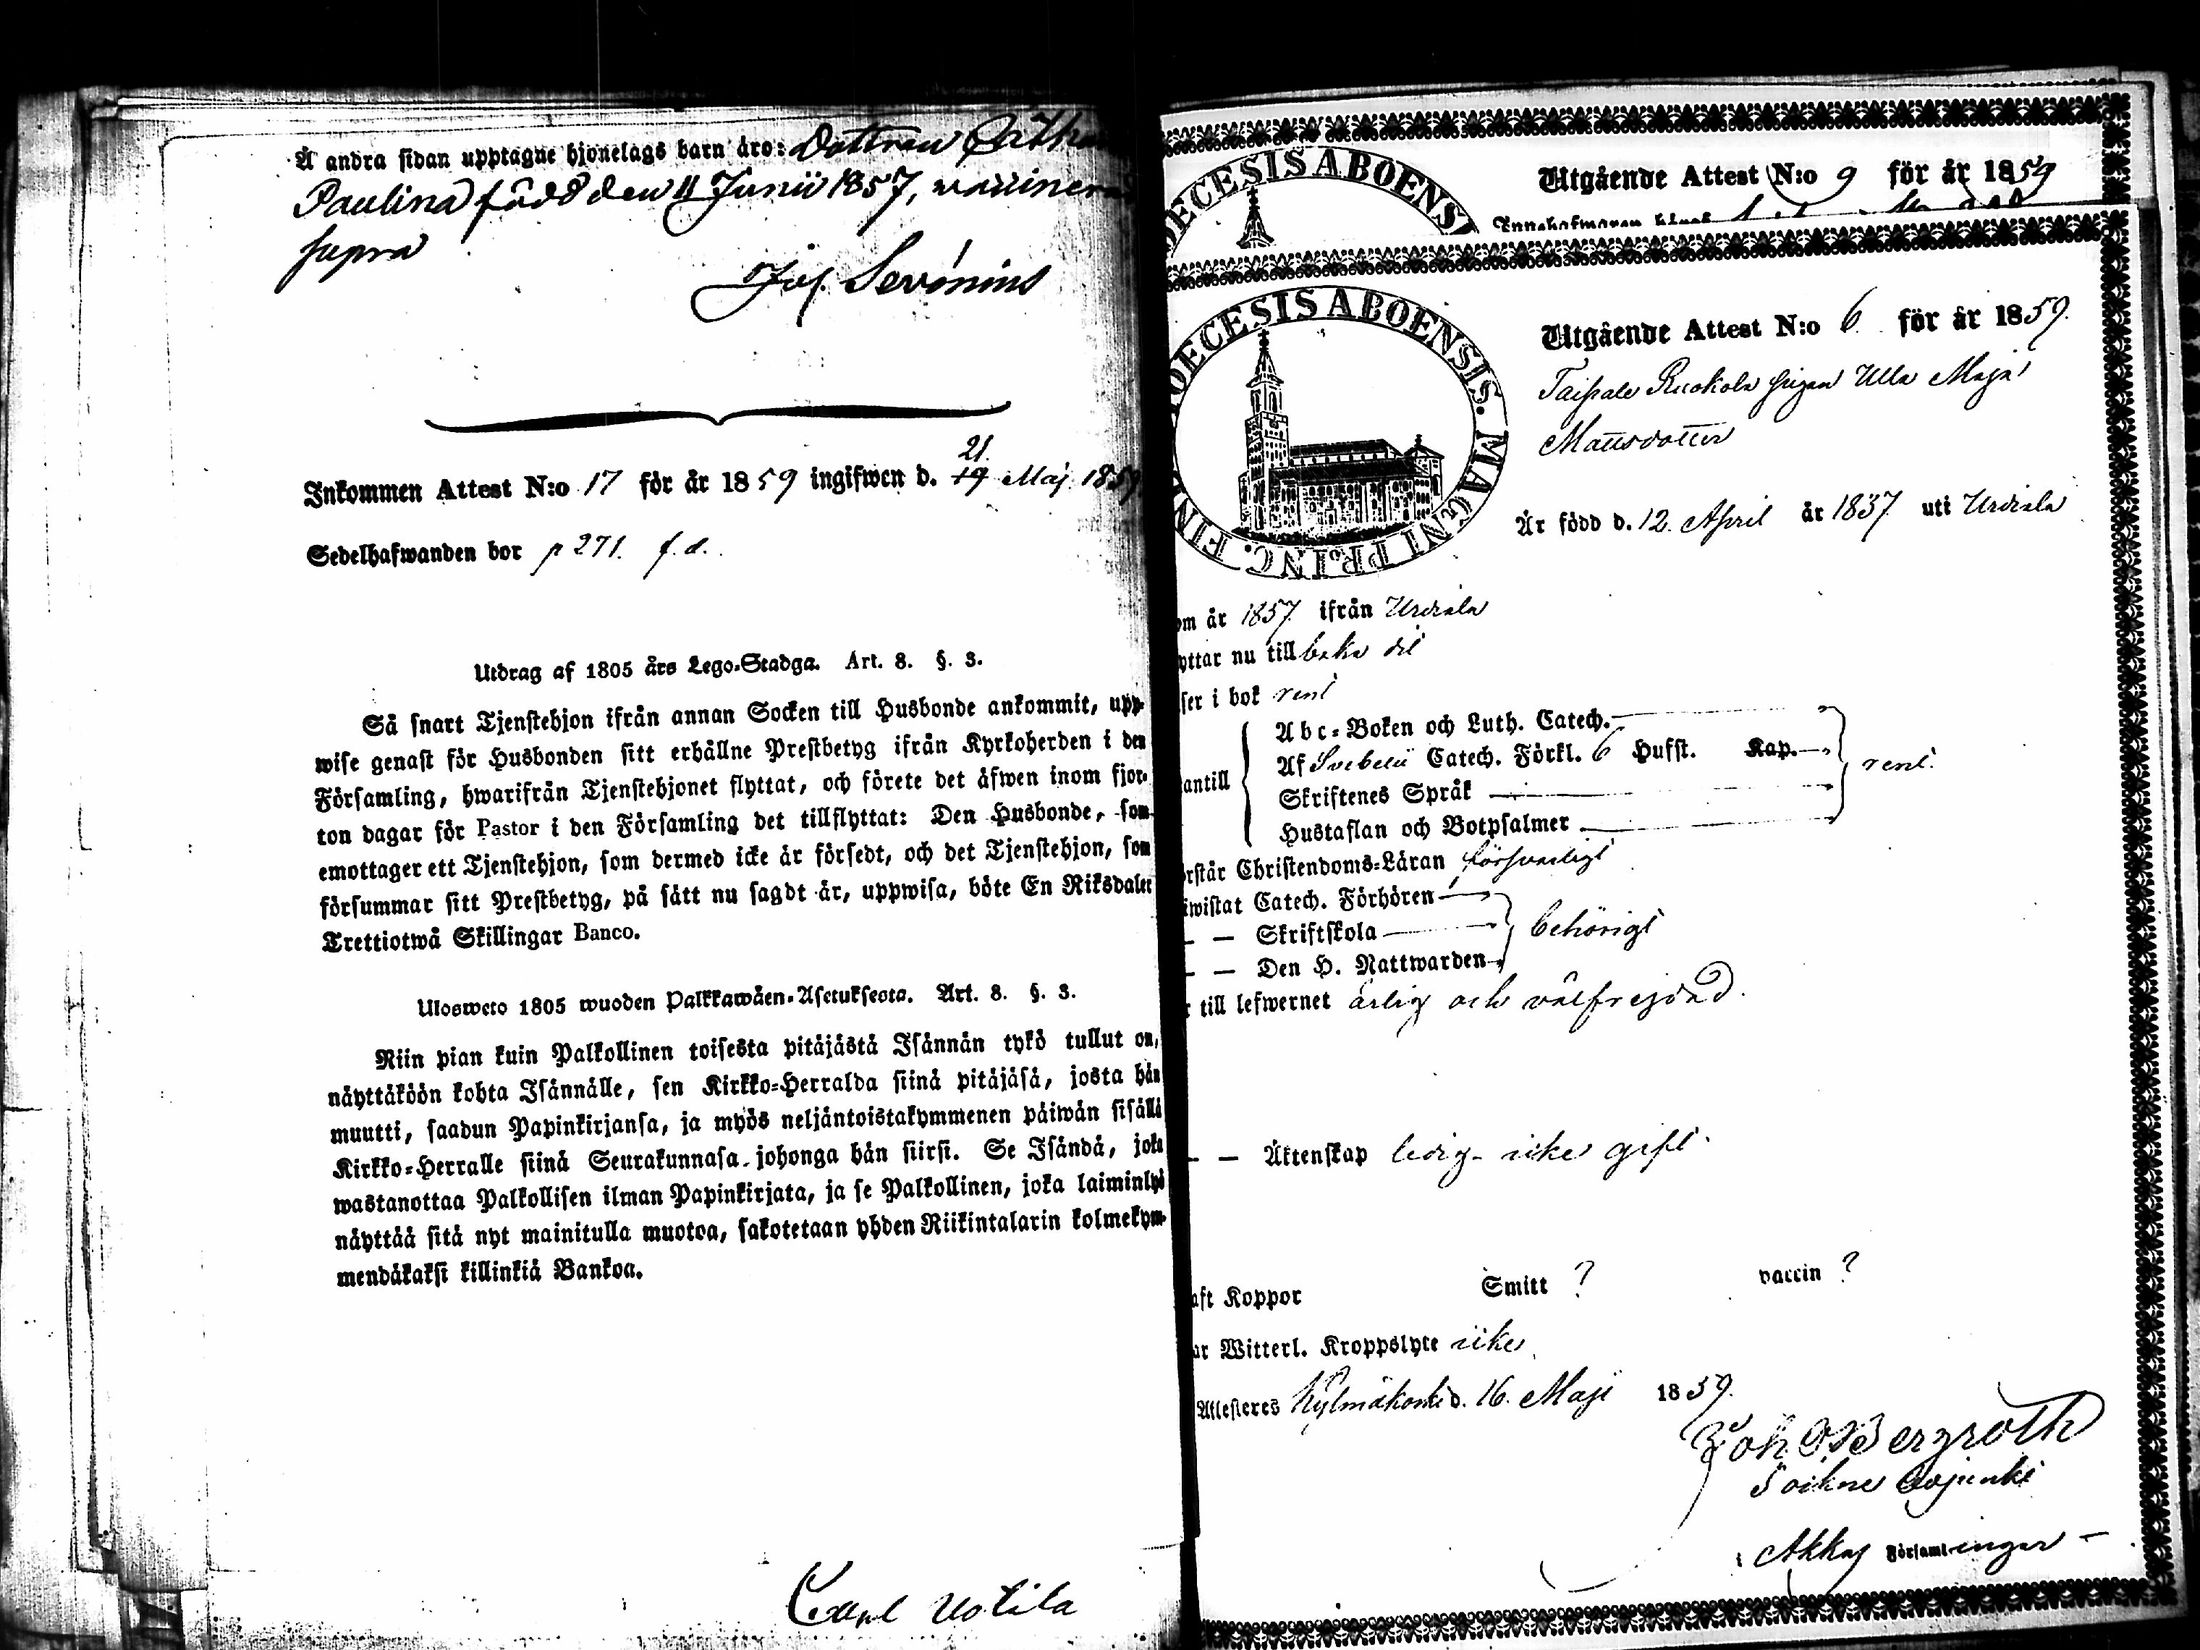 Å andra sidan upptagne hjonelags barn äro: Dottren
Paulina född den 11 Junii 1857,
supra
Jos. Sevónius
Inkommen Attest N:o 17 för år 1859 ingifwen d. 21. 19 Maj 1859
Sedelhafwanden bor p 271. f. d.
Utdrag af 1805 års Lego-Stadga. Art. 8. §. 3.
Så snart Tjenstehjon ifrån annan Socken till Husbonde ankommit, upp-
wise genast för Husbonden sitt erhållne Prestbetyg ifrån Kyrkoherden i den
Församling, hwarifrån Tjenstehjonet flyttat, och förete det äfwen inom fjor-
ton dagar för Pastor i den Församling det tillflyttat: Den Husbonde, som
emottager ett Tjenstehjon, som dermed icke är försedt, och det Tjenstehjon, som
försummar sitt Prestbetyg, på sätt nu sagdt är, uppwisa, böte En Riksdaler
Trettiotwå Skillingar Banco.
Ulosweto 1805 wuoden Palkkawäen-Asetuksesta. Art. 8. §. 3.
Niin pian kuin Palkollinen toisesta pitäjästä Isännän tykö tullut on,
näyttäköön kohta Isännälle, sen Kirkko-Herralda siinä pitäjäsä, josta hän
muutti, saadun Papinkirjansa, ja myös neljäntoistakymmenen päiwän sisällä
Kirkko-Herralle siinä Seurakunnasa johonga hän siirsi. Se Isändä, joka
wastanottaa Palkollisen ilman Papinkirjata, ja se Palkollinen, joka laiminlyö
näyttää sitä nyt mainitulla muotoa, sakotetaan yhden Riikintalarin kolmekym-
mendäkaksi killinkiä Bankoa.
Carl Uotila
DECESIS ABOENS
Utgående Attest N:o 9 för år 1859
Innehafwaren
OECESIS ABOENSIS. MAGNI PRINC. FIN
Utgående Attest N:o 6 för år 1859.
Taipale Ruokola pigan Ulla Maja
Mattsdotter
Är född d. 12. April år 1837 uti Urdiala
om år 1857 ifrån Urdiala
yttar nu till baka dit
ser i bok rent
antill
Abc-Boken och Luth. Catech.
Af Svebelii Catech. Förkl. 6 Hufst. Kap. rent.
Skriftenes Språk
Hustaflan och Botpsalmer
rstår Christendoms-Läran försvarligt
iwistat Catech. Förhören
— — Skriftskola behörigt
— — Den H. Nattwarden
r till lefwernet ärlig och välfrejdad.
— — Äktenskap ledig - icke gift.
aft Koppor Smitt ? vaccin ?
ar Witterl. Kroppslyte icke
Attesteres Kylmäkoski d. 16. Maji 1859.
Joh. Bergroth
Sockne Adjunkt
i Akkas Församlingar —